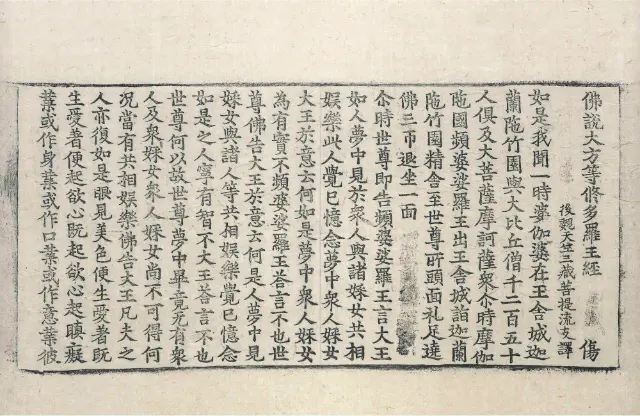 佛說大方等修多羅王經　傷
後魏天竺三藏菩提流支譯
如是我聞一時婆伽婆在王舍城迦
蘭陁竹園與大比丘僧千二百五十
人俱及大菩薩摩訶薩衆尒時摩伽
陁國頻婆娑羅王出王舍城詣迦蘭
陁竹園精舍至世尊所頭面礼足遶
佛三帀退坐一面
尒時世尊即告頻婆娑羅王言大王
如人夢中見於衆人與諸婇女共相
娛樂此人覺已憶念夢中衆人婇女
大王於意云何如是夢中衆人婇女
為有實不頻婆娑羅王荅言不也世
尊佛告大王於意云何是人夢中見
婇女與諸人等共相娛樂覺已憶念
如是之人寧有智不大王荅言不也
世尊何以故世尊夢中畢竟无有衆
人及衆婇女衆人婇女尚不可得何
況當有共相娛樂佛告大王凡夫之
人亦復如是眼見美色便生愛著既
生愛著便起欲心既起欲心起瞋癡
業或作身業或作口業或作意業彼